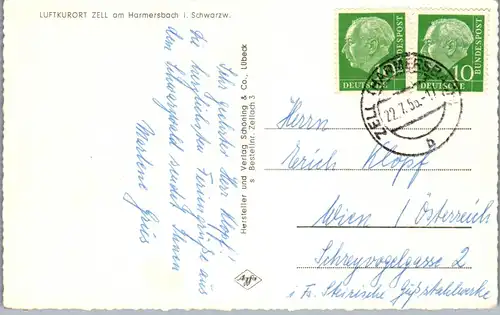 LUFTKURORT ZELL am Harmersbach i. Schwarzw.
Sehr geehrter Herr Klopf!
Die herzlichsten Feriengrüße aus
dem Schwarzwald sendet Ihnen
Marlene
Hersteller und Verlag Schöning & Co., Lübeck
s Bestellnr. Zellach 3
DEUTSCHE BUNDESPOST
DEUTSCHE BUNDESPOST
10
ZELL (HARMERSBACH)
22.7.58
b
Herrn
Erich Klopf
Wien / Österreich
Schreyvogelgasse 2
i Fa. Steirische Gußstahlwerke